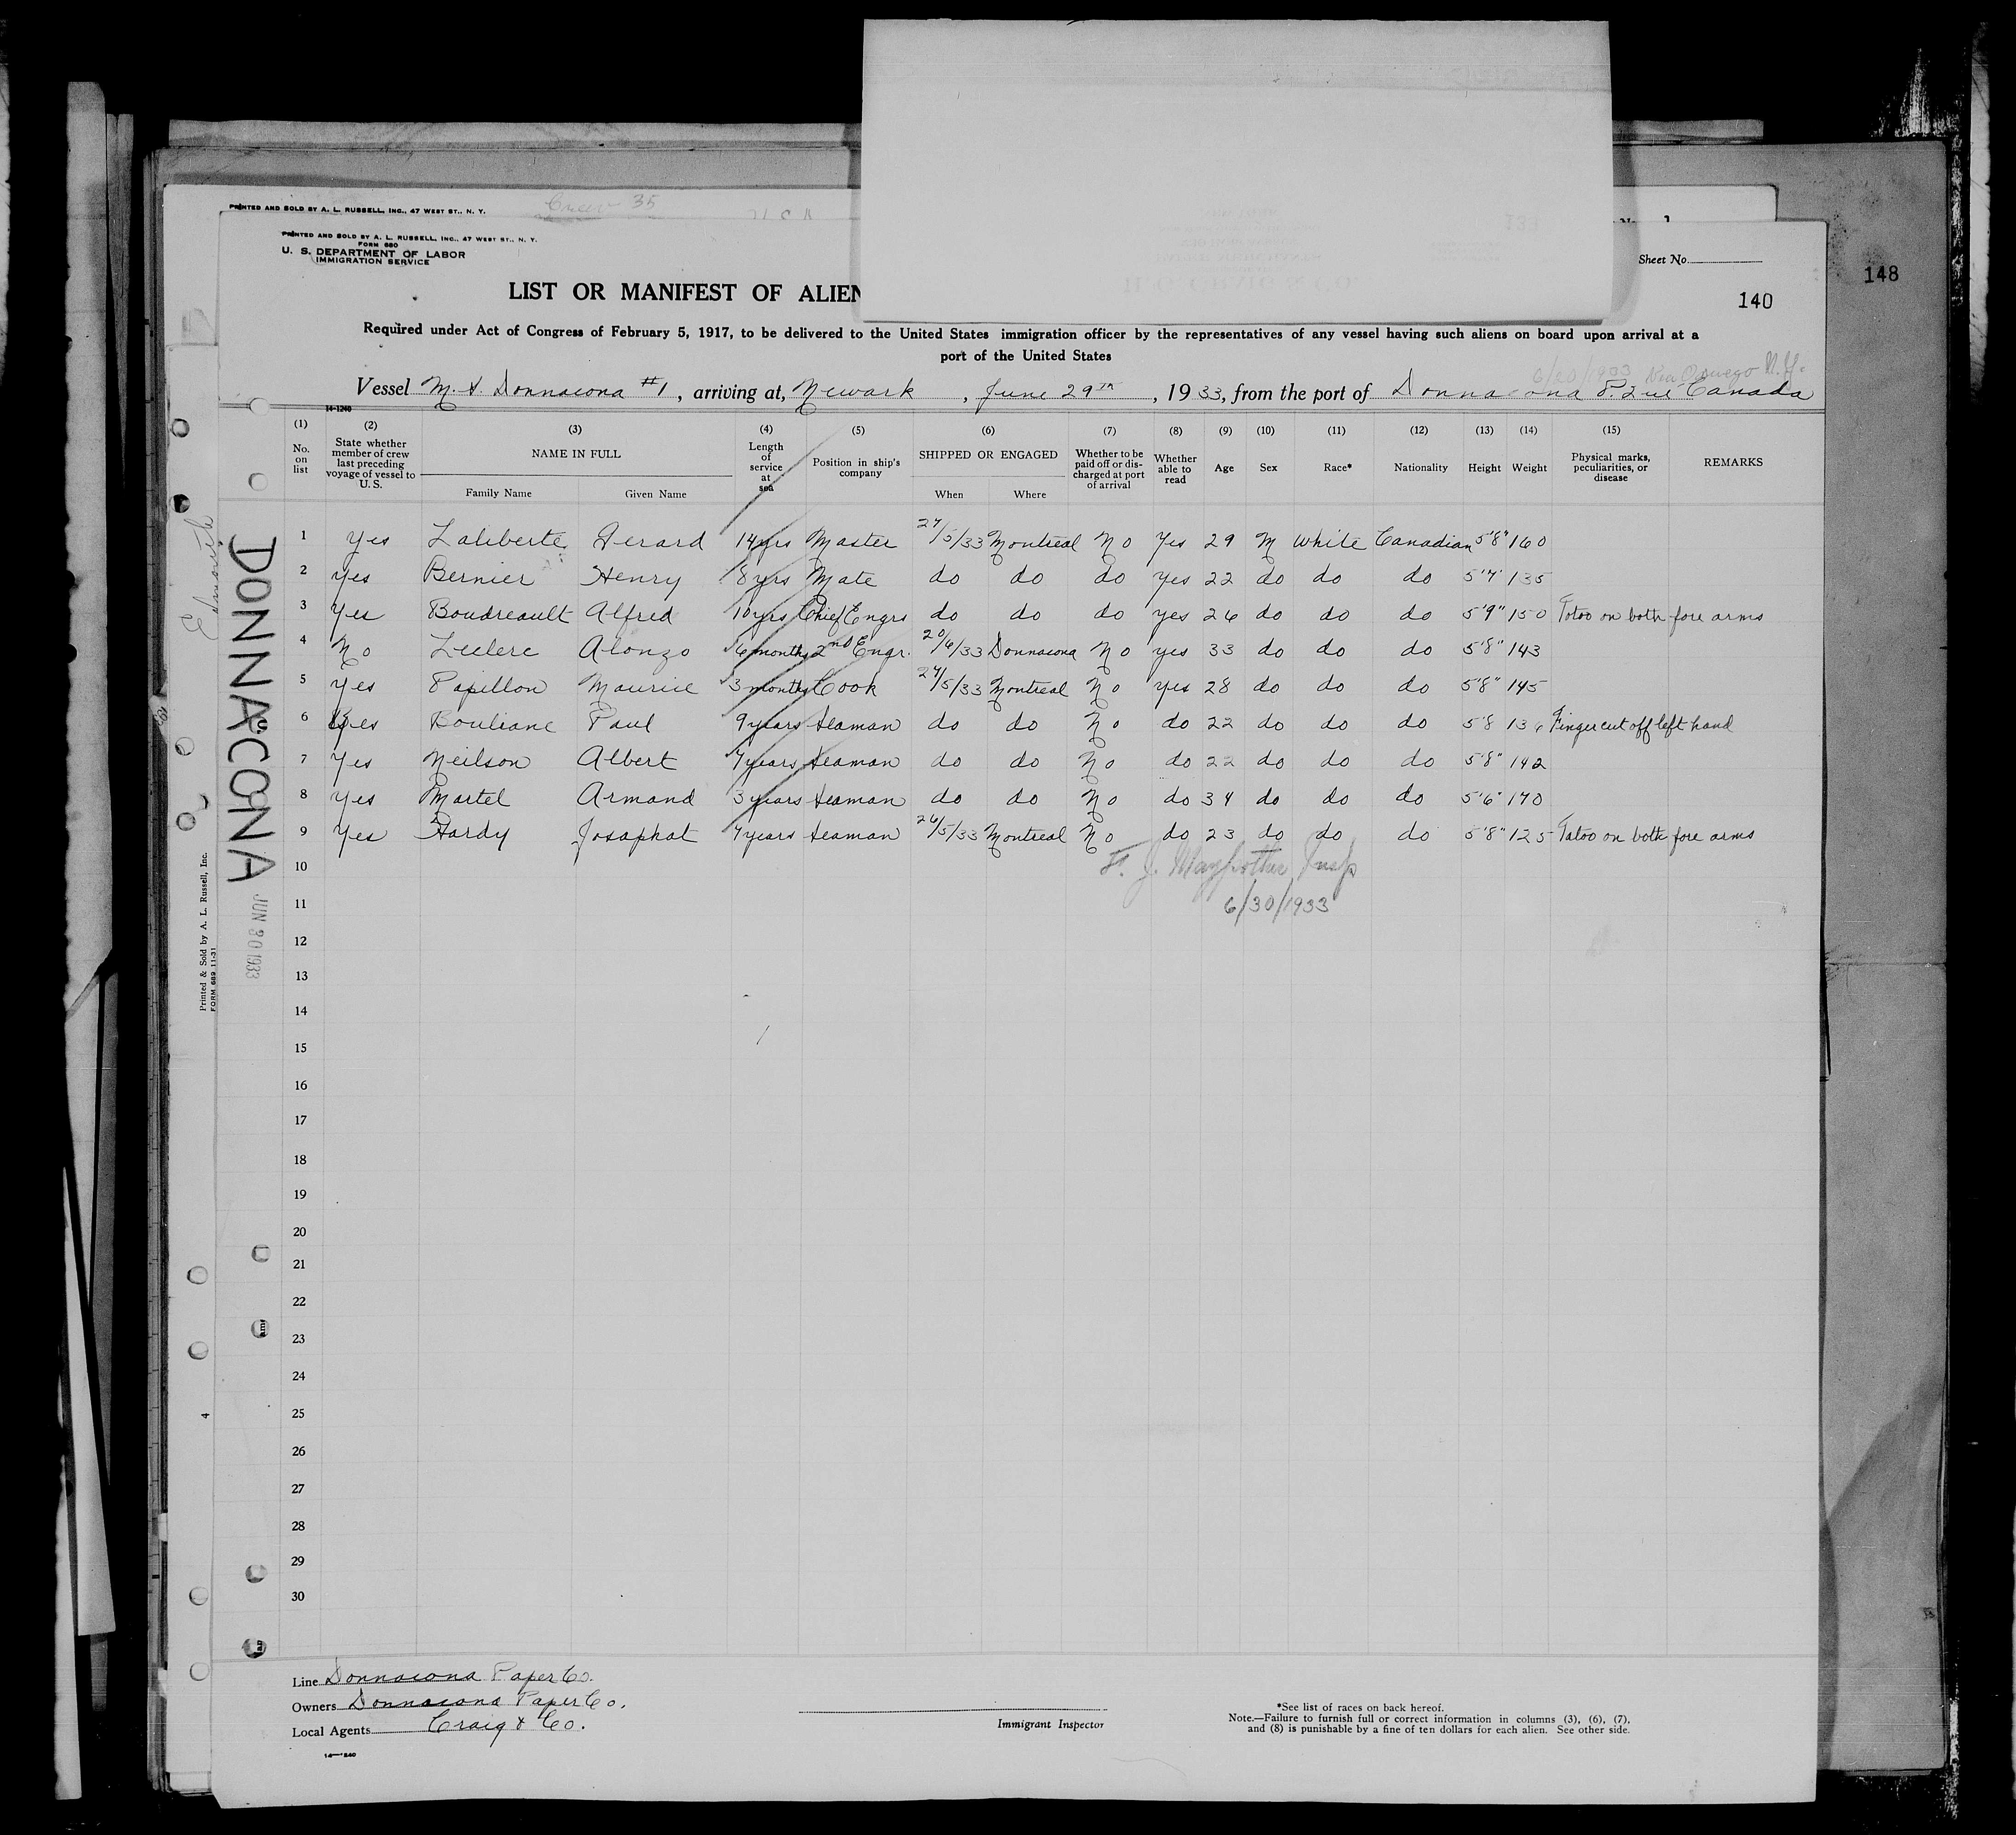 PRINTED AND SOLD BY A. L. RUSSELL, INC., 47 WEST ST., N. Y.
Crew 35
PRINTED AND SOLD BY A. L. RUSSELL, INC., 47 WEST ST., N. Y.
FORM 680
U. S. DEPARTMENT OF LABOR
IMMIGRATION SERVICE
Sheet No.
148
LIST OR MANIFEST OF ALIEN
140
Required under Act of Congress of February 5, 1917, to be delivered to the United States immigration officer by the representatives of any vessel having such aliens on board upon arrival at a
port of the United States
6/20/1933 Via Oswego N.Y.
Vessel M.S. Donnacona #1, arriving at, Newark, June 29th, 1933, from the port of Donnacona P. Que Canada
14-1240
(1) (2) (3) (4) (5) (6) (7) (8) (9) (10) (11) (12) (13) (14) (15)
No. on list State whether member of crew last preceding voyage of vessel to U. S. NAME IN FULL Family Name Given Name Length of service at sea Position in ship's company SHIPPED OR ENGAGED When Where Whether to be paid off or discharged at port of arrival Whether able to read Age Sex Race* Nationality Height Weight Physical marks, peculiarities, or disease REMARKS
1 Yes Laliberte Gerard 14yrs Master 27/5/33 Montreal No Yes 29 M White Canadian 5'8" 160
2 Yes Bernier Henry 8yrs Mate do do do Yes 22 do do do 5'7" 135
3 Yes Boudreault Alfred 10yrs Chief Engrs do do do Yes 26 do do do 5'9" 150 Totoo on both fore arms
4 No Leclerc Alonzo 6 months 2nd Engr. 20/6/33 Donnacona No yes 33 do do do 5'8" 143
5 Yes Papillon Maurice 3 months Cook 27/5/33 Montreal No Yes 28 do do do 5'8" 145
6 Yes Bouliane Paul 9years Seaman do do No do 22 do do do 5'8 136 Finger cut off left hand
7 Yes Neilson Albert 7years Seaman do do No do 22 do do do 5'8" 142
8 Yes Martel Armand 3years Seaman do do No do 34 do do do 5'6" 170
9 Yes Hardy Josaphat 7years Seaman 26/5/33 Montreal No do 23 do do do 5'8" 125 Tatoo on both fore arms
10
F. J. Insp
11
6/30/1933
12
13
14
15
16
17
18
19
20
21
22
23
24
25
26
27
28
29
30
DONNACONA
JUN 30 1933
Printed & Sold by A. L. Russell, Inc.
FORM 689 11-31
4
Line Donnacona Paper Co.
Owners Donnacona Paper Co.
Local Agents Craig & Co.
14-1240
Immigrant Inspector
*See list of races on back hereof.
Note.—Failure to furnish full or correct information in columns (3), (6), (7),
and (8) is punishable by a fine of ten dollars for each alien. See other side.